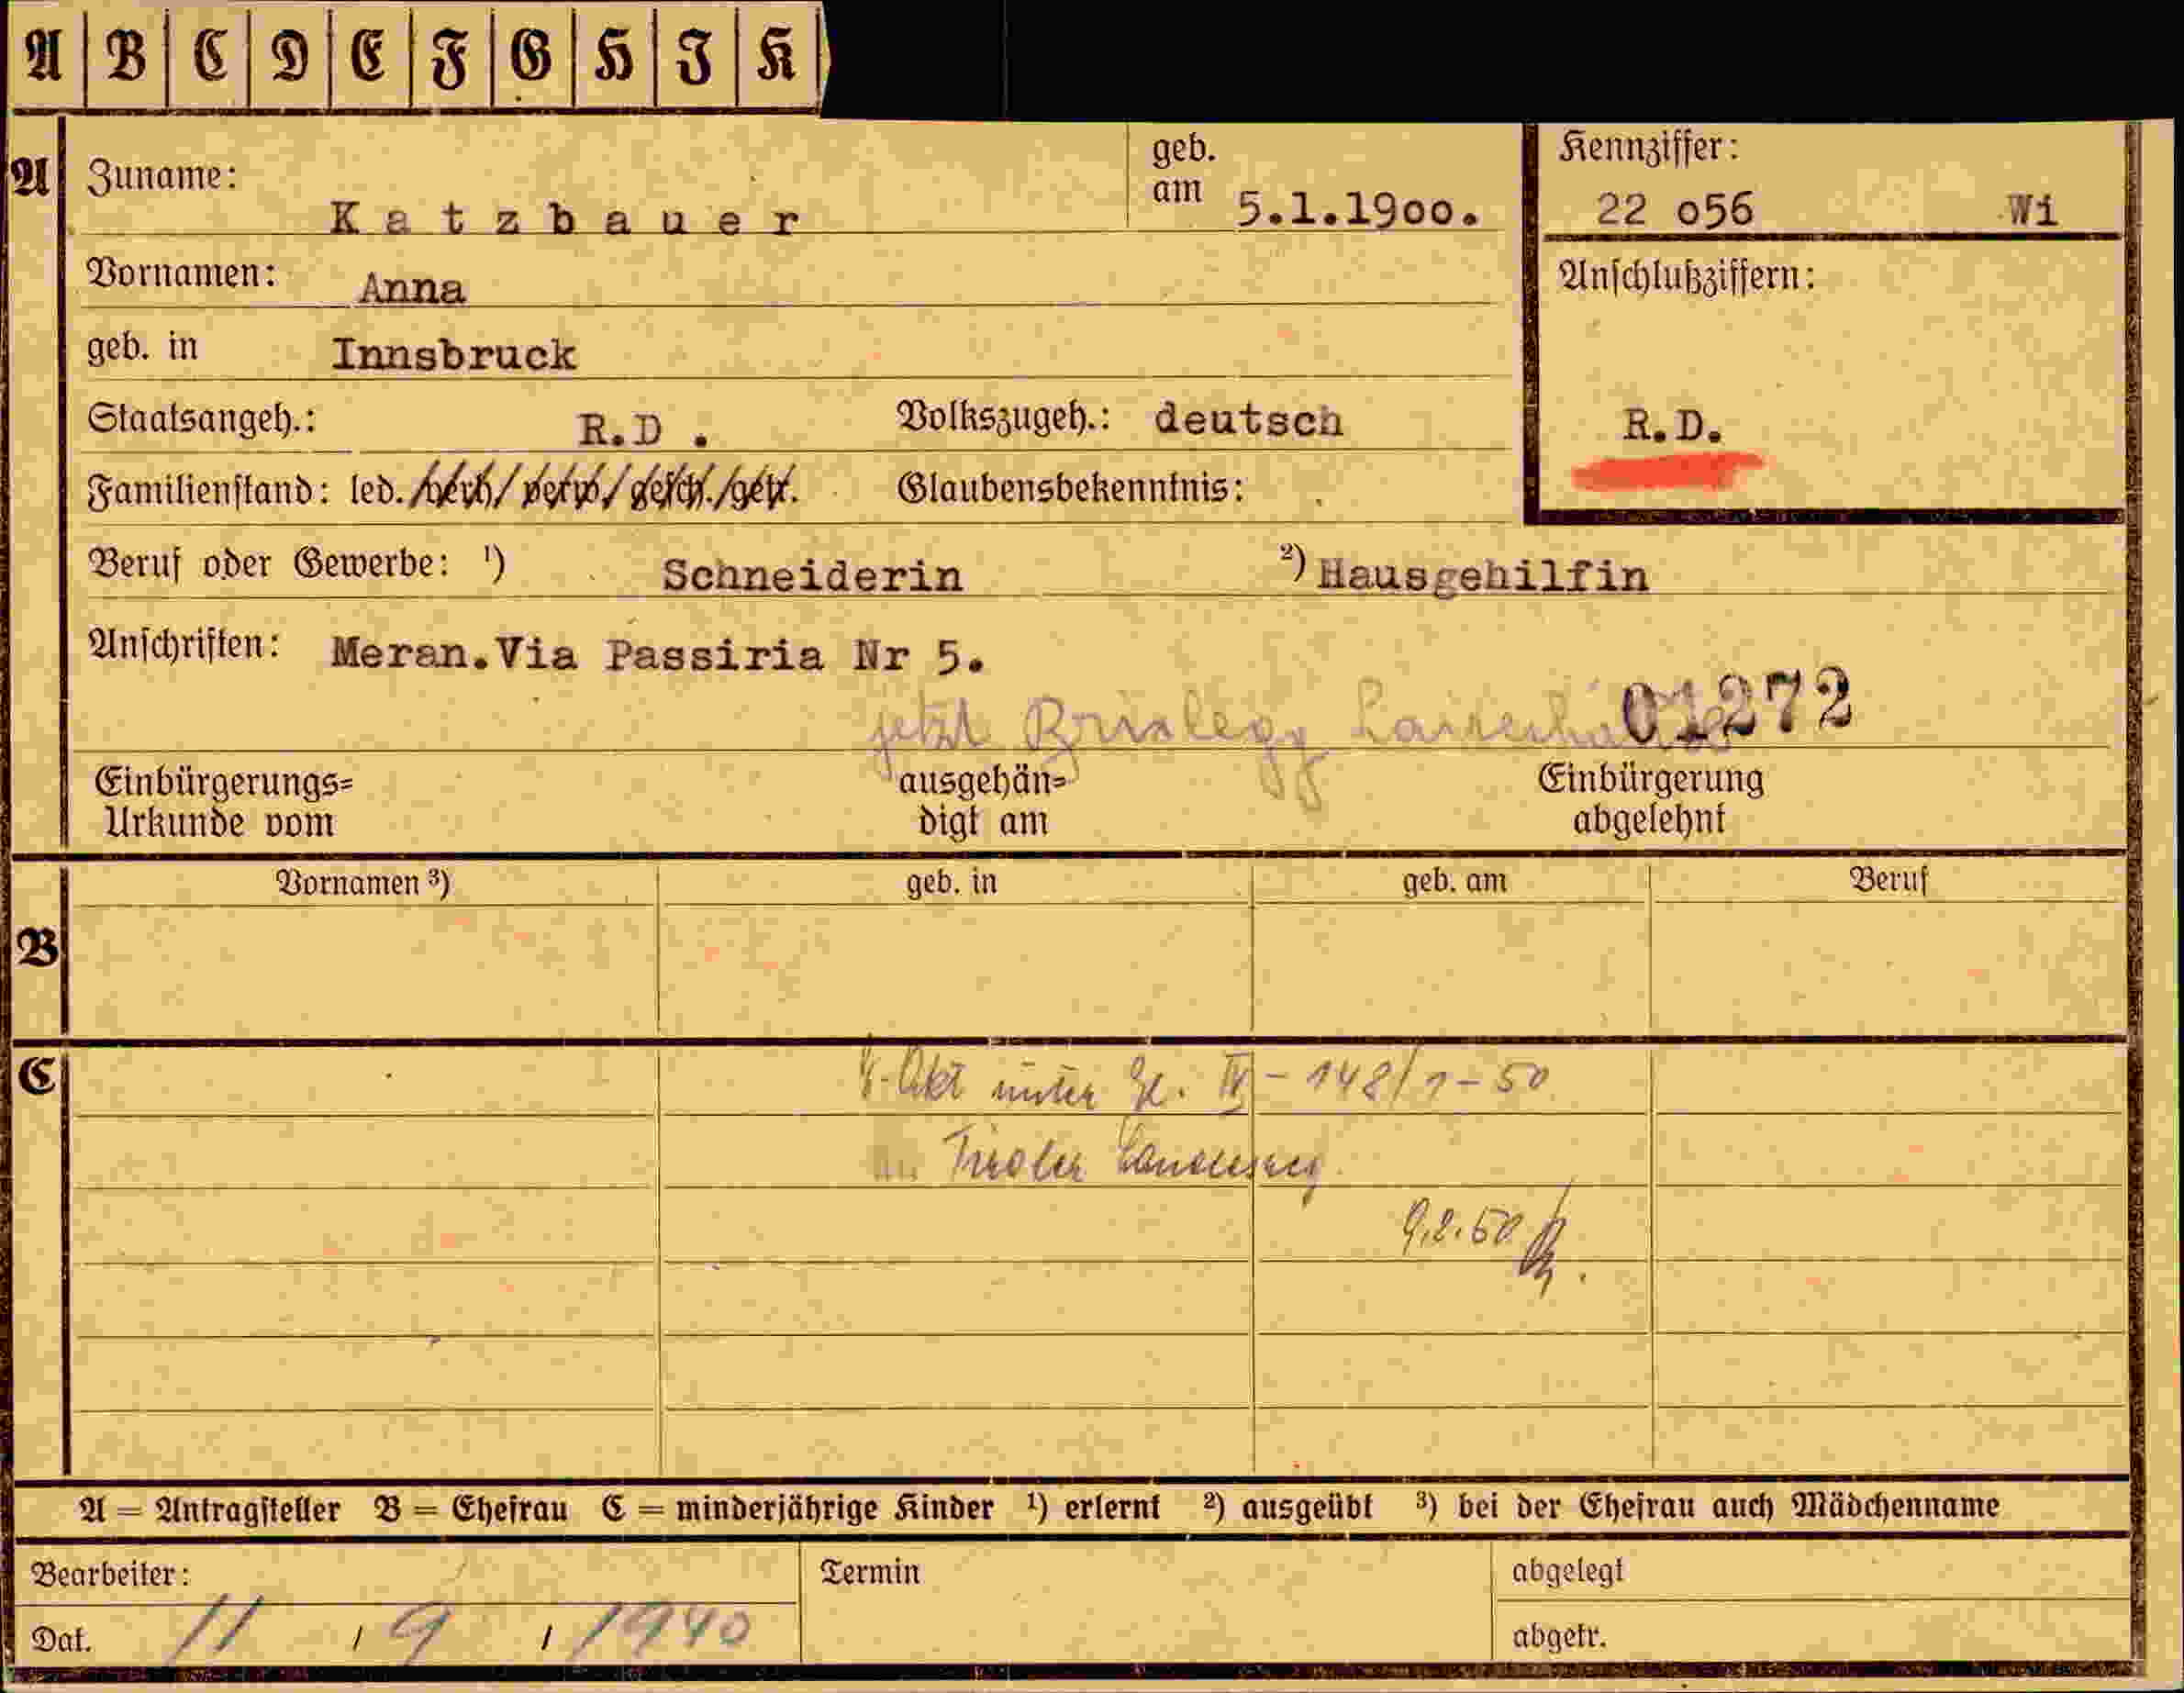 A B C D E F G H I K
A Zuname: Katzbauer geb. am 5.1.1900. Kennziffer: 22 056 Wi
Vornamen: Anna Anschlußziffern:
geb. in Innsbruck
Staatsangeh.: R.D . Volkszugeh.: deutsch R.D.
Familienstand: led./verh/verw./gesch./getr. Glaubensbekenntnis:
Beruf oder Gewerbe: ¹) Schneiderin ²) Hausgehilfin
Anschriften: Meran.Via Passiria Nr 5.
jetzt Brixlegg 01272
Einbürgerungs= ausgehän= Einbürgerung
Urkunde vom digt am abgelehnt
Vornamen ³) geb. in geb. am Beruf
B
C Akt unter Zl. IV - 148/1-50
Tiroler Landesreg.
9.2.50
A = Antragsteller B = Ehefrau C = minderjährige Kinder ¹) erlernt ²) ausgeübt ³) bei der Ehefrau auch Mädchenname
Bearbeiter: Termin abgelegt
Dat. 11 / 9 / 1940 abgetr.